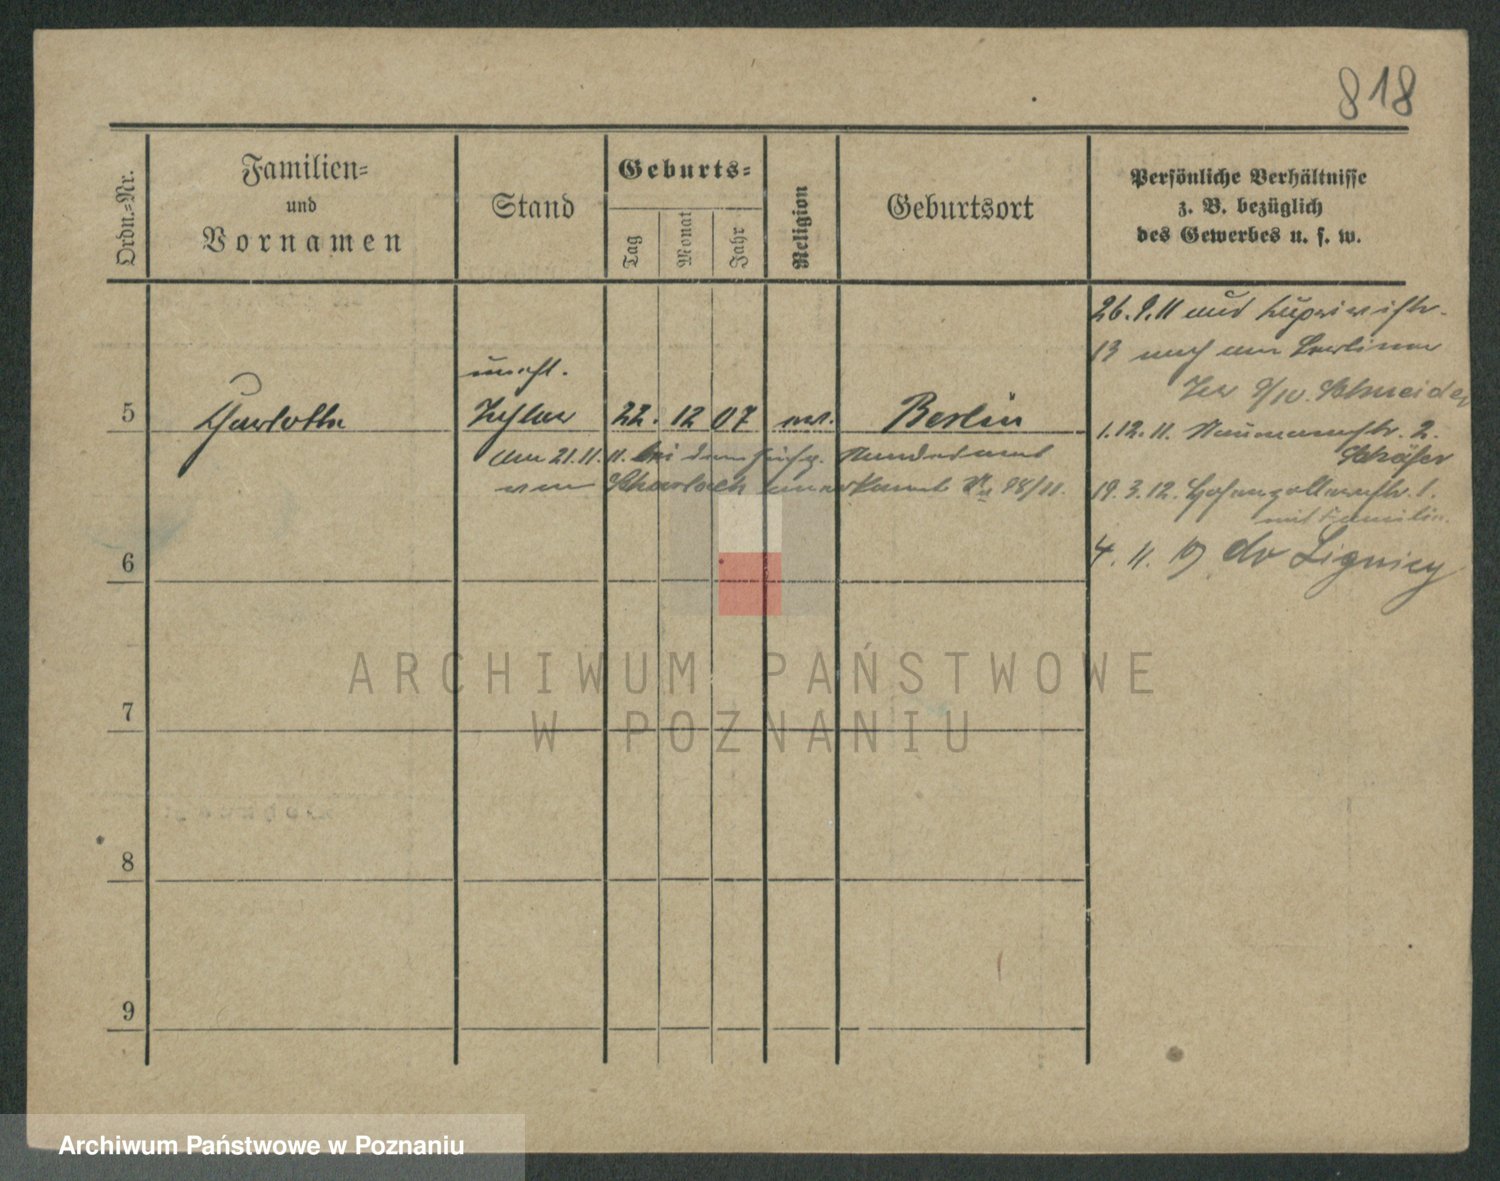 818
Ordn.-Nr.
Familien-
und
Vornamen
Stand
Geburts-
Tag
Monat
Jahr
Religion
Geburtsort
Persönliche Verhältnisse
z. B. bezüglich
des Gewerbes u. s. w.
5
unehl.
Tochter 22. 12 07 ev. Berlin
am 21.11.11. bei dem hies. Standesamt
von Scharlach anerkannt No 98/11.
26.9.11 aus
13 nach
Schneider
1.12.11. Naumannstr. 2.
Schäfer
19.3.12. Hohenzollernstr. 1.
mit Familie.
4. 11. 19 do
6
7
8
9
ARCHIWUM PAŃSTWOWE
W POZNANIU
Archiwum Państwowe w Poznaniu